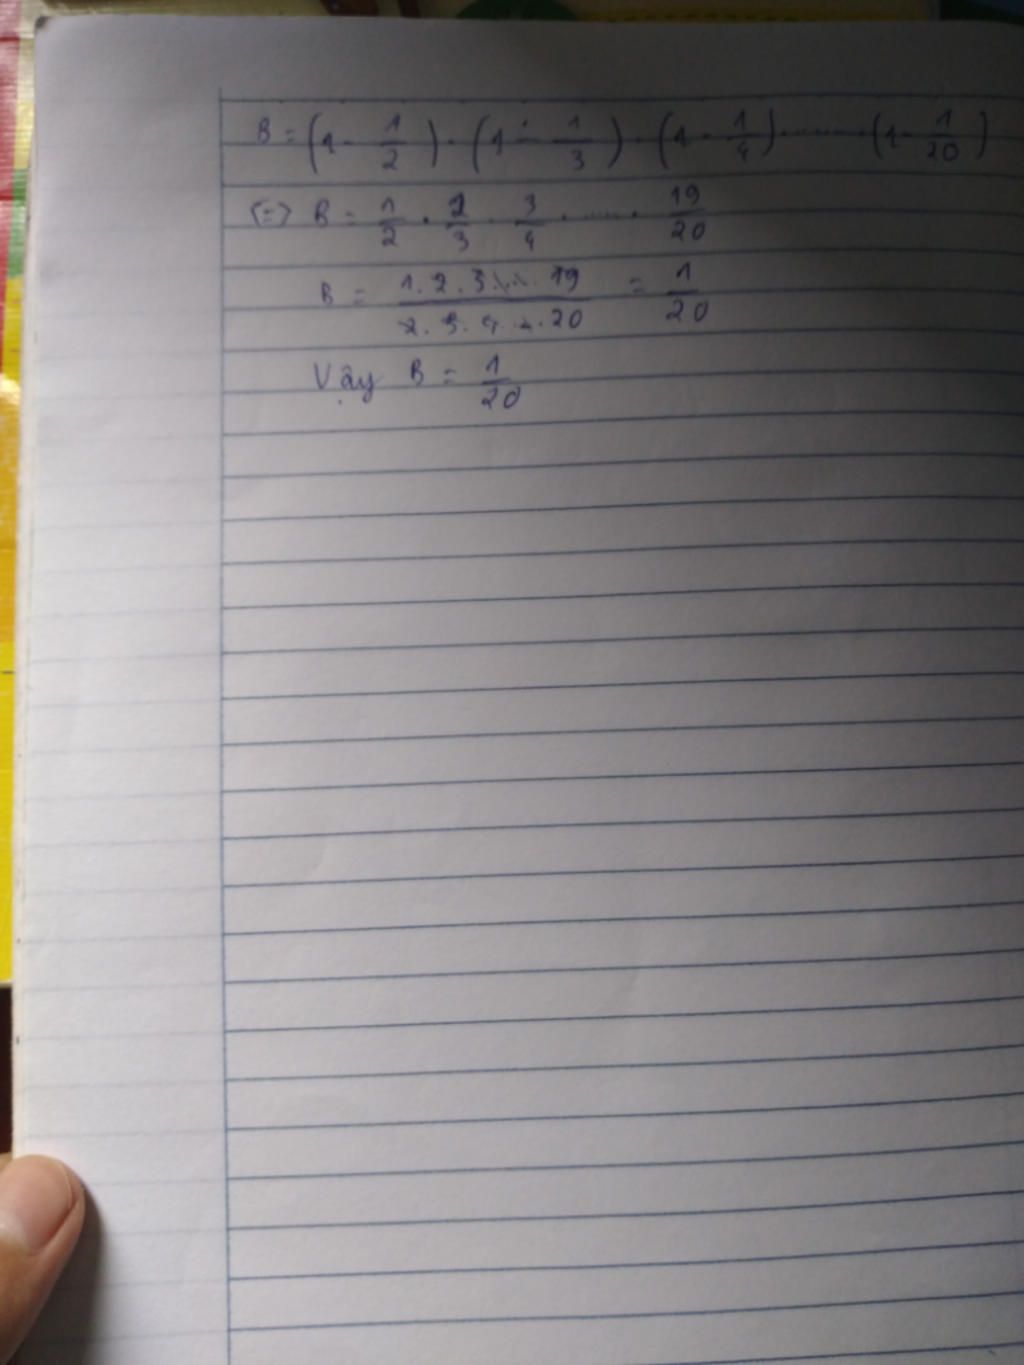 B = (1 - 1/2) . (1 - 1/3) . (1 - 1/4) ....... (1 - 1/20)
(=) B = 1/2 . 2/3 . 3/4 . ..... . 19/20
B = 1.2.3.....19 / 2.3.4...20 = 1/20
Vậy B = 1/20